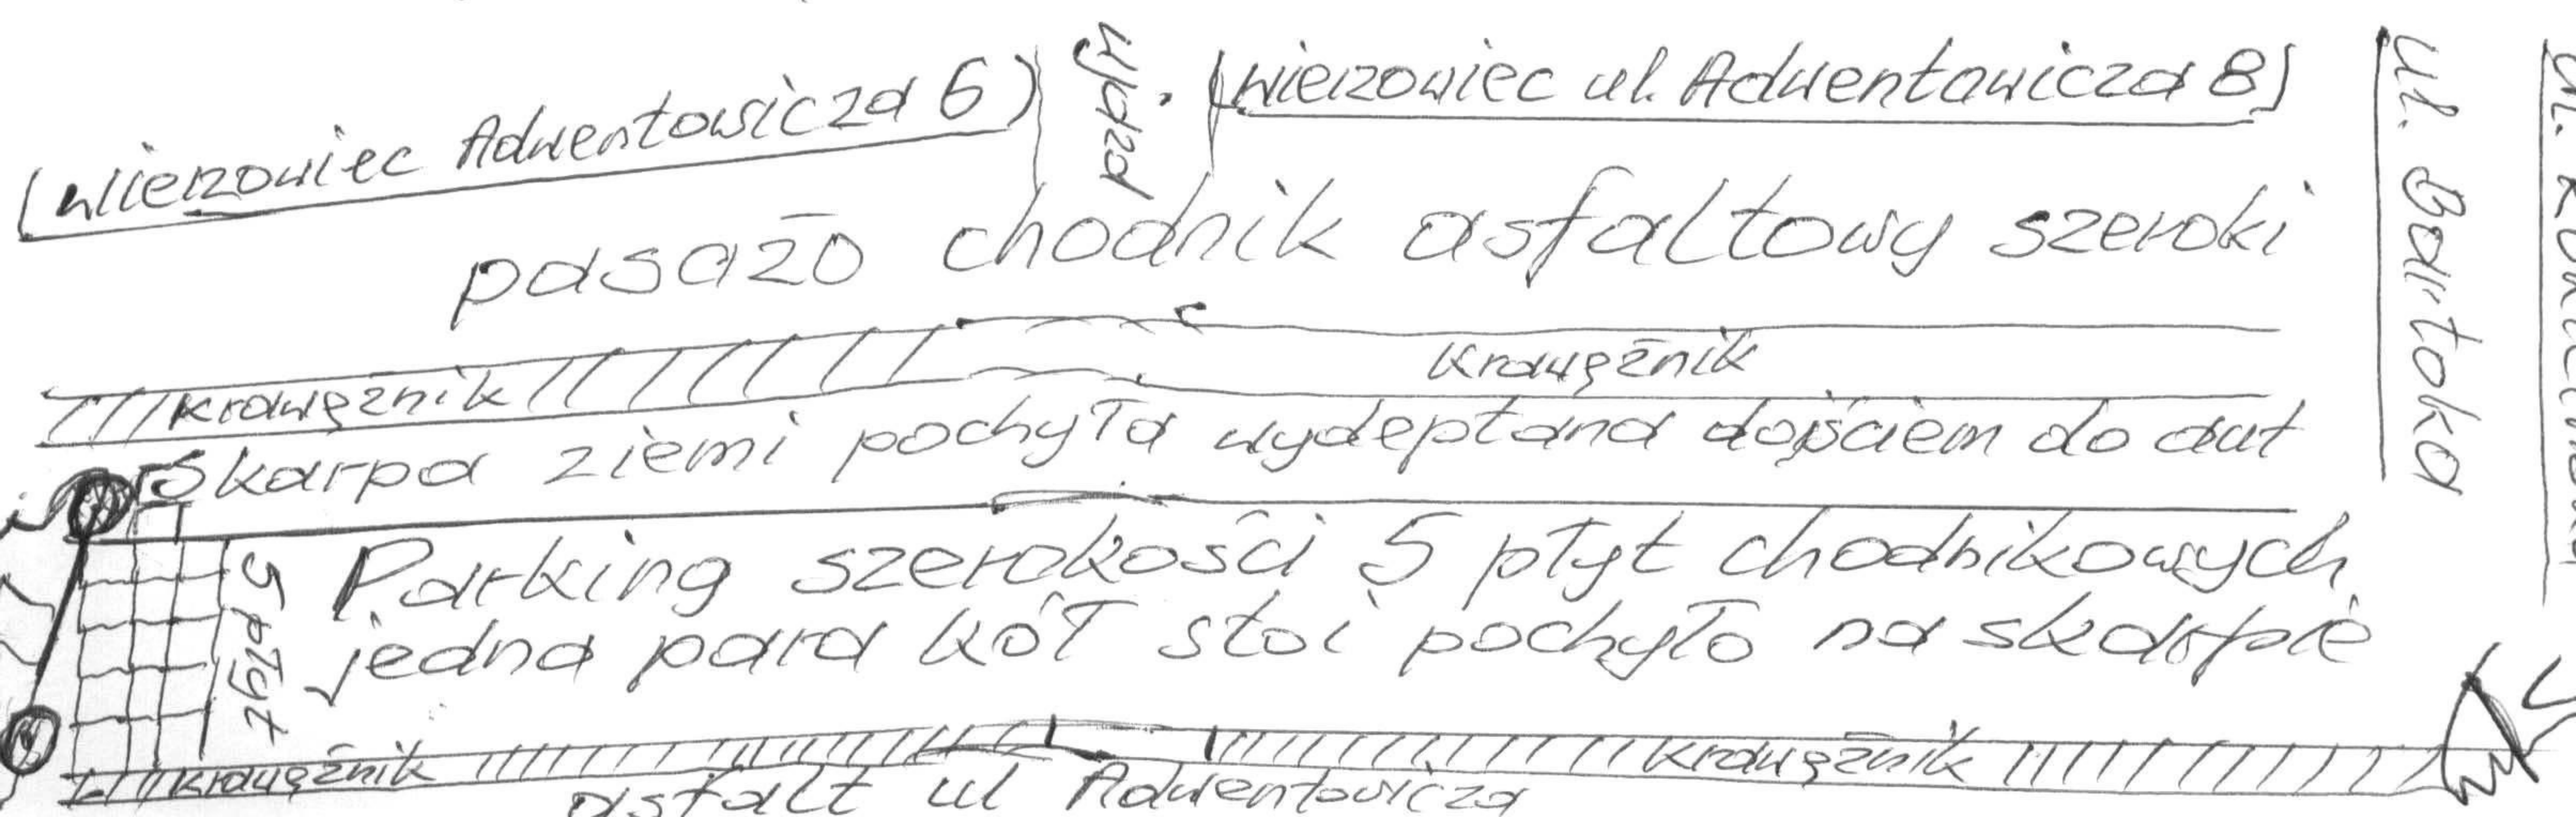 (wieżowiec Adwentowicza 6)
wyjazd
(wieżowiec ul. Adwentowicza 8)
ul. Bartoka
ul.
pasażo chodnik asfaltowy szeroki
krawężnik
krawężnik
skarpa ziemi pochyła wydeptana dojściem do aut
5 płyt
Parking szerokości 5 płyt chodnikowych
jedna para kół stoi pochyło na skarpie
krawężnik
krawężnik
asfalt ul Adwentowicza